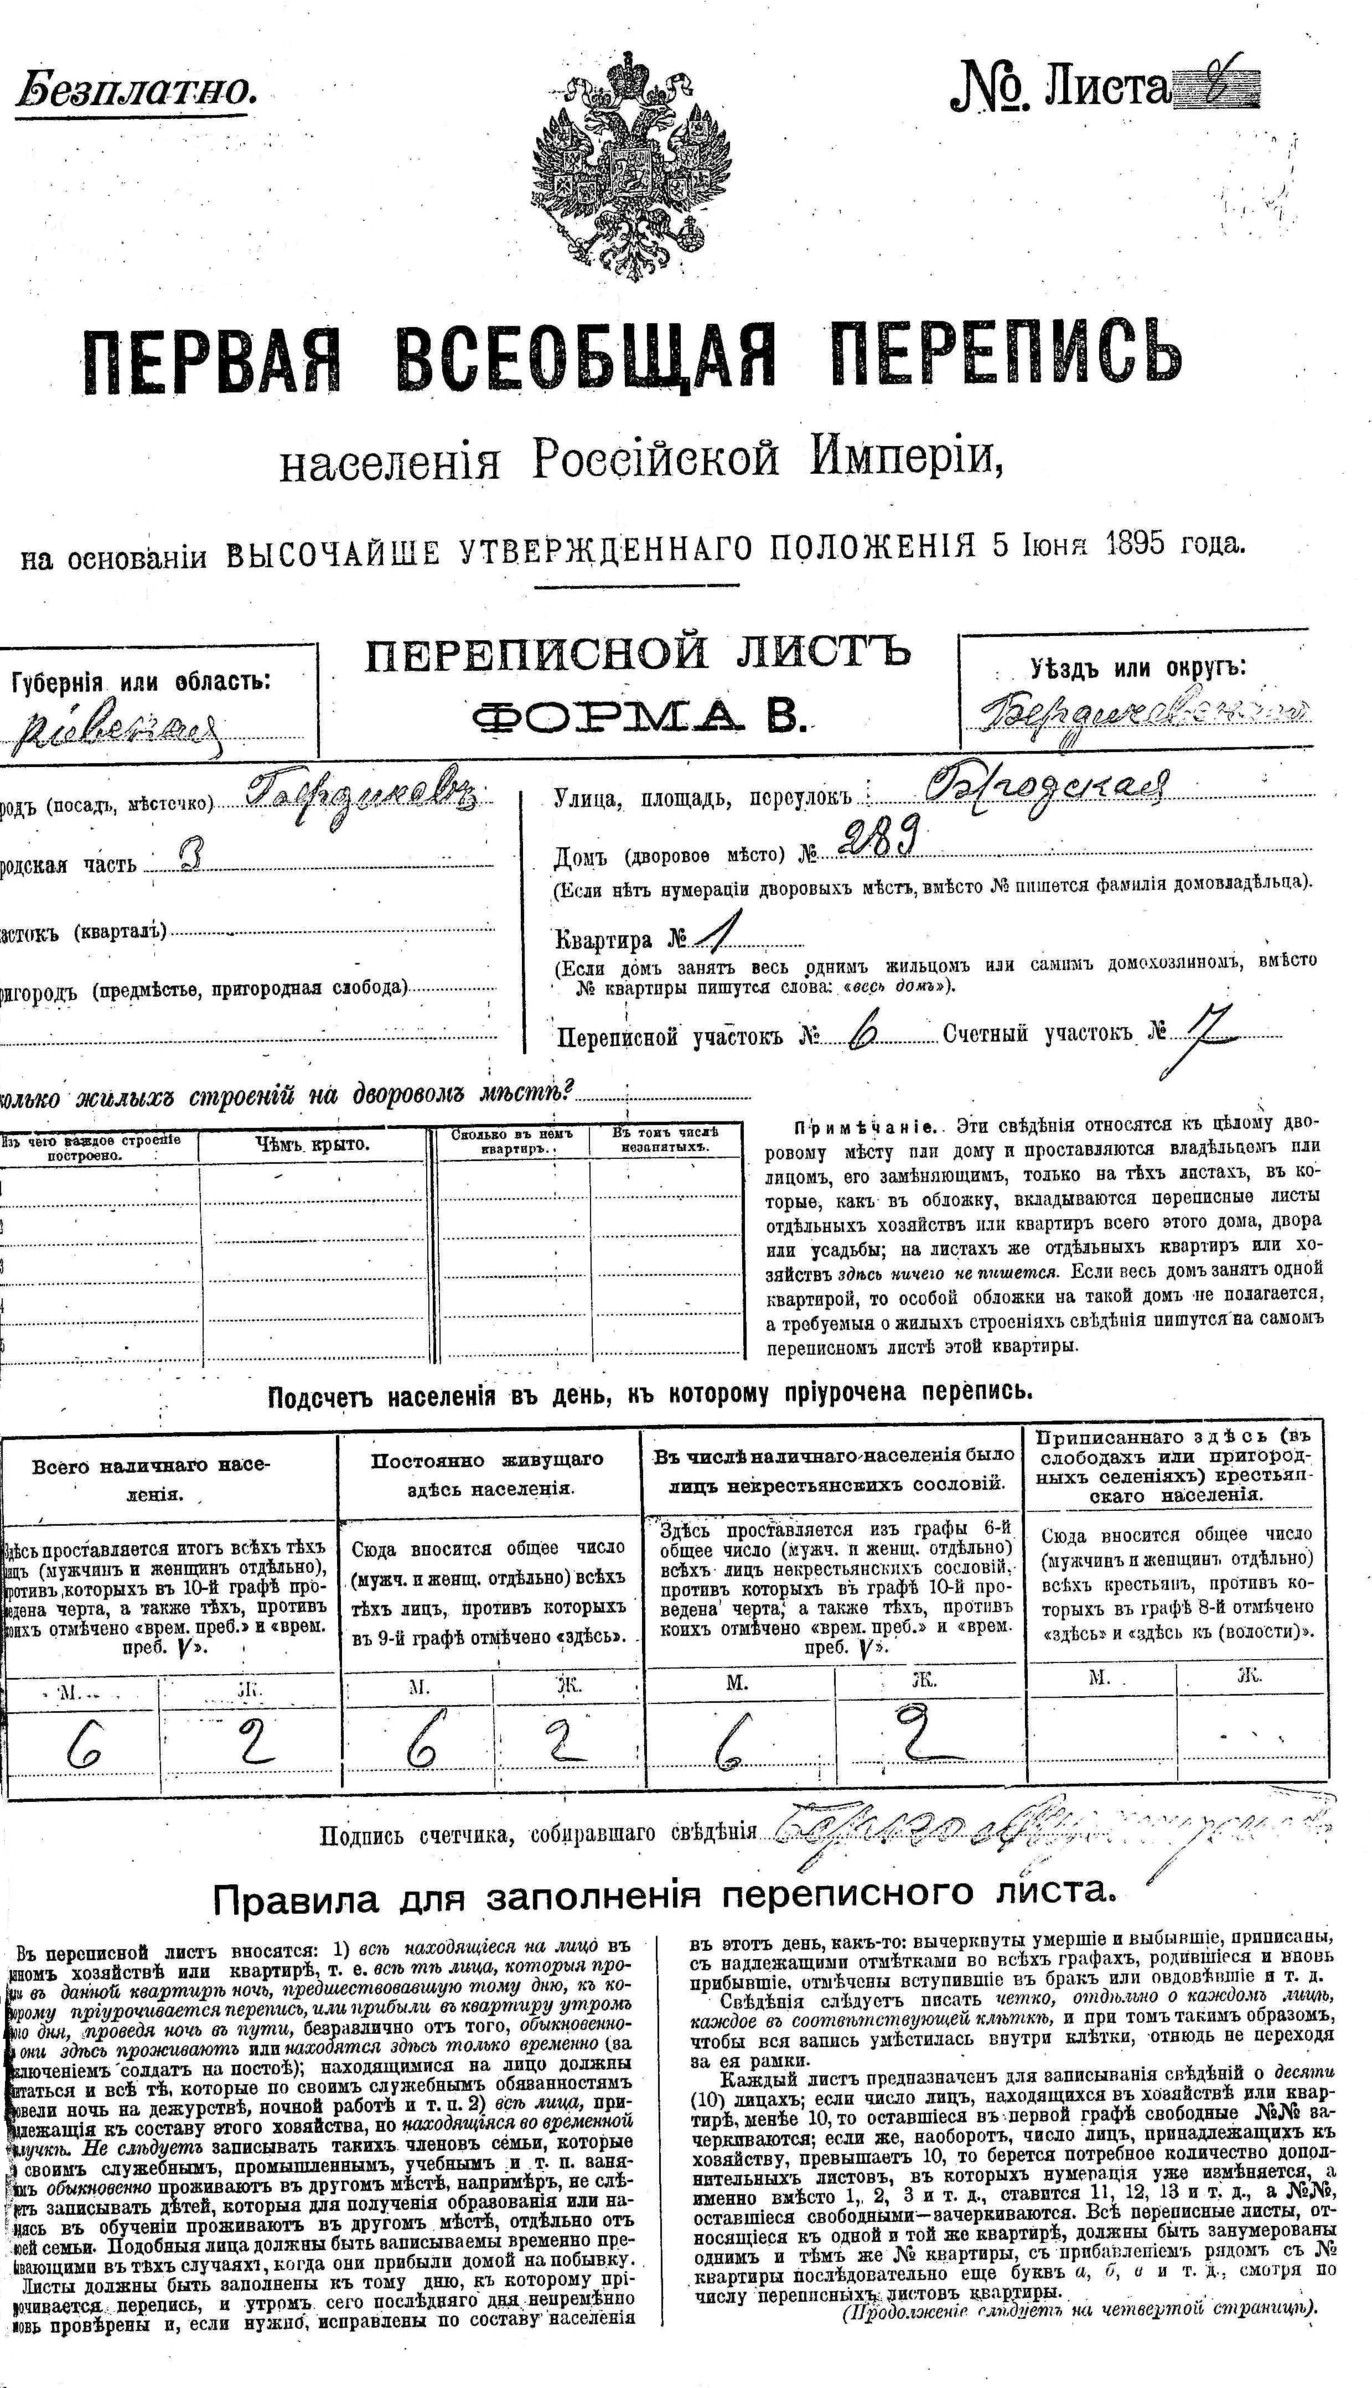 Безплатно.
№. Листа 8
ПЕРВАЯ ВСЕОБЩАЯ ПЕРЕПИСЬ
населенія Россійской Имперіи,
на основаніи ВЫСОЧАЙШЕ УТВЕРЖДЕННАГО ПОЛОЖЕНІЯ 5 Іюня 1895 года.
ПЕРЕПИСНОЙ ЛИСТЪ
ФОРМА В.
Губернія или область:
Кіевская
Уѣздъ или округъ:
Бердичевскій
родъ (посадъ, мѣстечко) Бердичевъ
родская часть 3
астокъ (кварталъ)
ригородъ (предмѣстье, пригородная слобода)
Улица, площадь, переулокъ Бродская
Домъ (дворовое мѣсто) № 289
(Если нѣтъ нумераціи дворовыхъ мѣстъ, вмѣсто № пишется фамилія домовладѣльца).
Квартира № 1
(Если домъ занятъ весь однимъ жильцомъ или самимъ домохозяиномъ, вмѣсто
№ квартиры пишутся слова: «весь домъ»).
Переписной участокъ № 6 Счетный участокъ № 7
олько жилыхъ строеній на дворовомъ мѣстѣ?
Изъ чего каждое строеніе
построено.
Чѣмъ крыто.
Сколько въ немъ
квартиръ.
Въ томъ числѣ
незанятыхъ.
1
2
3
4
5
Примѣчаніе. Эти свѣдѣнія относятся къ цѣлому дво-
ровому мѣсту или дому и проставляются владѣльцемъ или
лицомъ, его замѣняющимъ, только на тѣхъ листахъ, въ ко-
торые, какъ въ обложку, вкладываются переписные листы
отдѣльныхъ хозяйствъ или квартиръ всего этого дома, двора
или усадьбы; на листахъ же отдѣльныхъ квартиръ или хо-
зяйствъ здѣсь ничего не пишется. Если весь домъ занятъ одной
квартирой, то особой обложки на такой домъ не полагается,
а требуемыя о жилыхъ строеніяхъ свѣдѣнія пишутся на самомъ
переписномъ листѣ этой квартиры.
Подсчетъ населенія въ день, къ которому пріурочена перепись.
Всего наличнаго насе-
ленія.
Здѣсь проставляется итогъ всѣхъ тѣхъ
лицъ (мужчинъ и женщинъ отдѣльно),
противъ которыхъ въ 10-й графѣ про-
ведена черта, а также тѣхъ, противъ
коихъ отмѣчено «врем. преб.» и «врем.
преб. V».
Постоянно живущаго
здѣсь населенія.
Сюда вносится общее число
(мужч. и женщ. отдѣльно) всѣхъ
тѣхъ лицъ, противъ которыхъ
въ 9-й графѣ отмѣчено «здѣсь».
Въ числѣ наличнаго населенія было
лицъ некрестьянскихъ сословій.
Здѣсь проставляется изъ графы 6-й
общее число (мужч. и женщ. отдѣльно)
всѣхъ лицъ некрестьянскихъ сословій,
противъ которыхъ въ графѣ 10-й про-
ведена черта, а также тѣхъ, противъ
коихъ отмѣчено «врем. преб.» и «врем.
преб. V».
Приписаннаго здѣсь (въ
слободахъ или пригород-
ныхъ селеніяхъ) крестьян-
скаго населенія.
Сюда вносится общее число
(мужчинъ и женщинъ отдѣльно)
всѣхъ крестьянъ, противъ ко-
торыхъ въ графѣ 8-й отмѣчено
«здѣсь» и «здѣсь къ (волости)».
М. Ж. М. Ж. М. Ж. М. Ж.
6 2 6 2 6 2
Подпись счетчика, собиравшаго свѣдѣнія
Правила для заполненія переписного листа.
Въ переписной листъ вносятся: 1) всѣ находящіеся на лицо въ
нномъ хозяйствѣ или квартирѣ, т. е. всѣ тѣ лица, которыя про-
ли въ данной квартирѣ ночь, предшествовавшую тому дню, къ ко-
орому пріурочивается перепись, или прибыли въ квартиру утромъ
го дня, проведя ночь въ пути, безразлично отъ того, обыкновенно-
они здѣсь проживаютъ или находятся здѣсь только временно (за
ключеніемъ солдатъ на постоѣ); находящимися на лицо должны
итаться и всѣ тѣ, которые по своимъ служебнымъ обязанностямъ
овели ночь на дежурствѣ, ночной работѣ и т. п. 2) всѣ лица, при-
длежащія къ составу этого хозяйства, но находящіяся во временной
лучкѣ. Не слѣдуетъ записывать такихъ членовъ семьи, которые
своимъ служебнымъ, промышленнымъ, учебнымъ и т. п. заня-
мъ обыкновенно проживаютъ въ другомъ мѣстѣ, напримѣръ, не слѣ-
етъ записывать дѣтей, которыя для полученія образованія или на-
дясь въ обученіи проживаютъ въ другомъ мѣстѣ, отдѣльно отъ
оей семьи. Подобныя лица должны быть записываемы временно пре-
бывающими въ тѣхъ случаяхъ, когда они прибыли домой на побывку.
Листы должны быть заполнены къ тому дню, къ которому прі-
рочивается перепись, и утромъ сего послѣдняго дня непремѣнно
новь провѣрены и, если нужно, исправлены по составу населенія
въ этотъ день, какъ-то: вычеркнуты умершіе и выбывшіе, приписаны,
съ надлежащими отмѣтками во всѣхъ графахъ, родившіеся и вновь
прибывшіе, отмѣчены вступившіе въ бракъ или овдовѣвшіе и т. д.
Свѣдѣнія слѣдуетъ писать четко, отдѣльно о каждомъ лицѣ,
каждое въ соотвѣтствующей клѣткѣ, и при томъ такимъ образомъ,
чтобы вся запись умѣстилась внутри клѣтки, отнюдь не переходя
за ея рамки.
Каждый листъ предназначенъ для записыванія свѣдѣній о десяти
(10) лицахъ; если число лицъ, находящихся въ хозяйствѣ или квар-
тирѣ, менѣе 10, то оставшіеся въ первой графѣ свободные №№ за-
черкиваются; если же, наоборотъ, число лицъ, принадлежащихъ къ
хозяйству, превышаетъ 10, то берется потребное количество допол-
нительныхъ листовъ, въ которыхъ нумерація уже измѣняется, а
именно вмѣсто 1, 2, 3 и т. д., ставится 11, 12, 13 и т. д., а №№,
оставшіеся свободными—зачеркиваются. Всѣ переписные листы, от-
носящіеся къ одной и той же квартирѣ, должны быть занумерованы
однимъ и тѣмъ же № квартиры, съ прибавленіемъ рядомъ съ №
квартиры послѣдовательно еще буквъ а, б, в и т. д., смотря по
числу переписныхъ листовъ квартиры.
(Продолженіе слѣдуетъ на четвертой страницѣ).